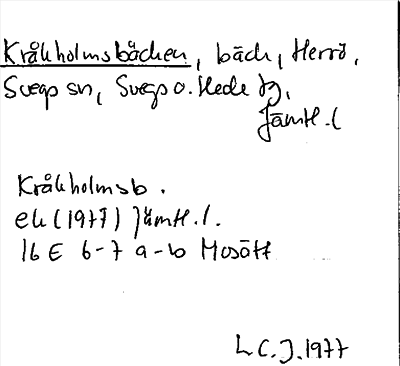 Kråkholmsbäcken, bäck, Herrö,
Svegs sn, Svegs o. Hede tg,
Jämtl. l
Kråkholmsb.
ek (1977) Jämtl. l.
16 E 6-7 a-b Mosätt
L C. J. 1977